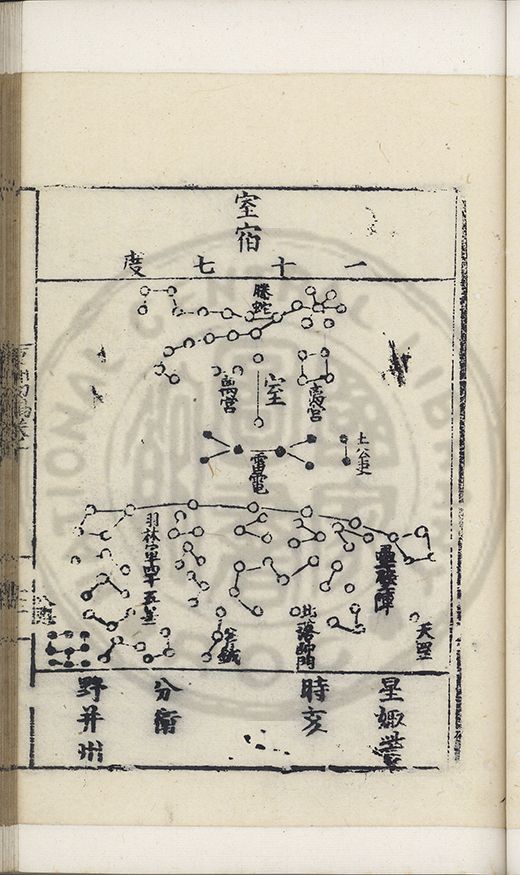 室宿
一十七度
螣蛇
离宮
室
离宮
土公吏
雷電
壘壁陣
羽林軍四十五星
天罡
北落師門
鉞
星娵訾
時亥
分衛
野并州